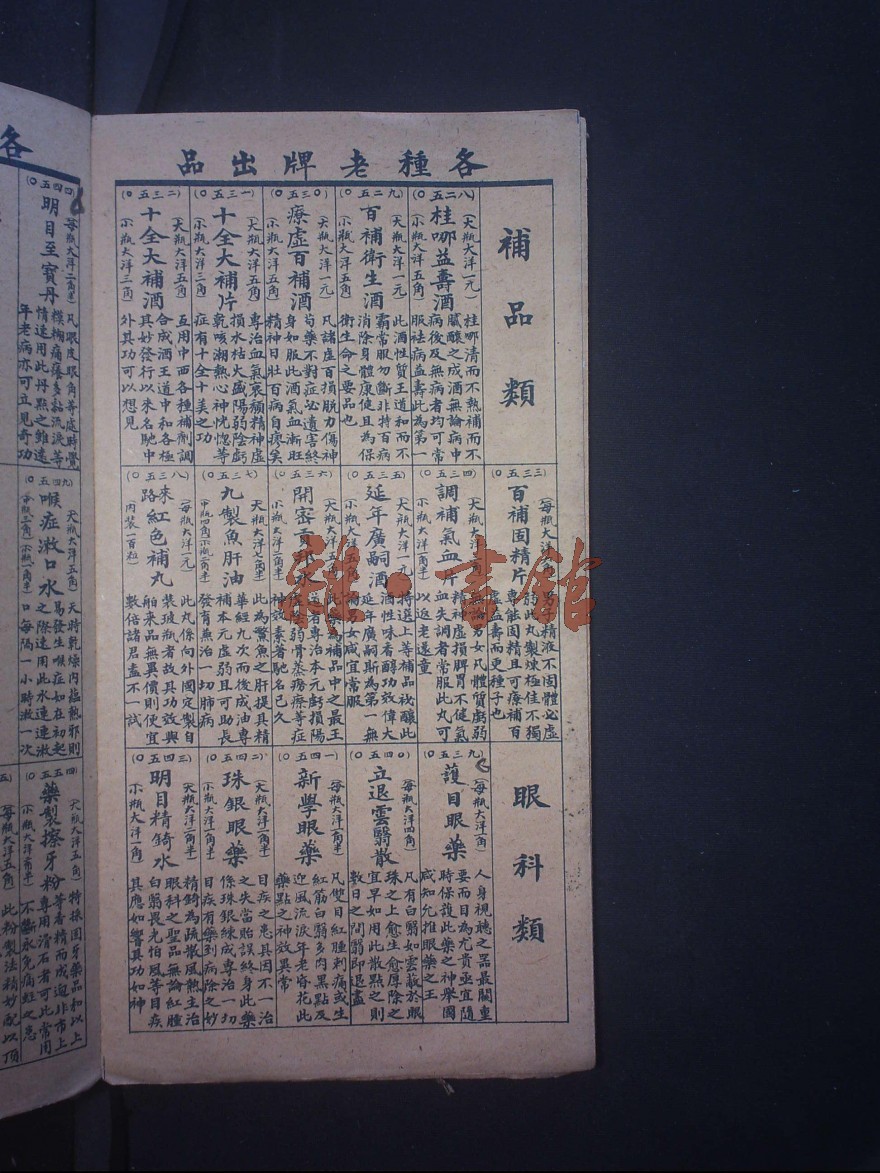 各種老牌出品
補品類
(五二八〇)
桂哪益壽酒
(大瓶大洋一元)
(小瓶大洋五角)
桂哪清而不熱補而不
膩釀之成酒無論病中
病後及無病者均可常
服祛病益壽此為第一
(五二九〇)
百補衛生酒
(大瓶大洋一元)
(小瓶大洋五角)
此酒性質王道和而不
霸常服勿斷非特百病
消除身體康健且為保
衛生命之要品也
(五三〇〇)
療虛百補酒
(大瓶大洋一元)
(小瓶大洋五角)
凡諸虛百損脫力傷神
苟藥不對症必遺害終
身如服此酒氣血漸旺
精神日壯百病自瘳矣
(五三一〇)
十全大補片
(大瓶大洋五角)
(小瓶大洋三角)
專治血氣衰頹精神虛
損水枯火盛陽弱陰虧
乾咳潮熱心神恍惚等
症有十全十美之功
(五三二〇)
十全大補酒
(大瓶大洋五角)
(小瓶大洋三角)
互用中西各種補劑調
合成酒王道中和各極
其妙發行以來名馳中
外其功可以想見
(五三三〇)
百補固精片
(每瓶大洋一角)
男子精液不固體必虛
弱此丸製煉極佳不獨
專能固精且可療補百
虛益壽而更種子也
(五三四〇)
調補氣血片
(大瓶大洋五角)
無論男女凡體質虧弱
精神虛損脾胃不健氣
血失調者常服此丸可
以返老還童
(五三五〇)
延年廣嗣酒
(大瓶大洋一元)
(小瓶大洋五角)
特選上等補品祕釀此
酒性味香醇功效偉大
延年廣嗣斯為第一無
論男女咸宜常服
(五三六〇)
專治本元虧損陽
陰弱骨蒸癆瘵等症
神效素著馳名已久
(五三七〇)
九製魚肝油
(大瓶大洋七角半)
此為鱉魚之肝提具精
華經九次而後成油專
補本元虛弱且可助長
發育兼治一切肺病
(五三八〇)
來路紅色補丸
(每瓶大洋一元)
(內裝一百粒)
此丸係向外國定製自
裝玻瓶者故具功效與
舶來品無異價則便宜
數倍諸君盍不一試
眼科類
(五三九〇)
護目眼藥
(每瓶大洋一角)
人身視聽之器最關重
要而目為尤貴亟宜隨
時保護此藥之神舉國
咸知允推眼藥之王
(五四〇〇)
立退雲翳散
(每瓶大洋四角)
凡有白翳如雲蔽於眼
珠之上愈生愈厚除之
宜早如用此散點之則
數日之間翳即退盡
(五四一〇)
新學眼藥
(每瓶大洋一角半)
凡雙目紅腫刺痛或生
紅筋白翳多肉黑點及
迎風流淚年老昏花此
藥點之神效異常
(五四二〇)
珠銀眼藥
(大瓶大洋二角半)
目疾之患具因不一治
之失當貽誤終身此藥
係珠銀煉成專治一切
目疾有藥到病除之妙
(五四三〇)
明目精錡水
(大瓶大洋二角半)
(小瓶大洋一角)
精錡為疏散風熱主治
眼科之聖品無論紅腫
白翳畏光怕風等目疾
其應如響具功如神
各
(五四四〇)
明目至寶丹
(每瓶大洋二角半)
凡眼皮眼角等處時覺
糢糊痛癢多黏流淚等
情速用此丹點之雖遠
年老病亦可立見奇功
(五四九〇)
喉症漱口水
(大瓶大洋五角)
天時乾燥內蘊熱邪則
易發生喉症如在初起
之際速用此水連連漱
口每隔一小時漱一次
藥製擦牙粉
(大瓶大洋五角)
特採固牙藥品和以上
等香精而成迥非市上
專用滑石者可比常用
不斷永免痛蛀之患
(每瓶大洋五角)
此粉製法精妙配以頂